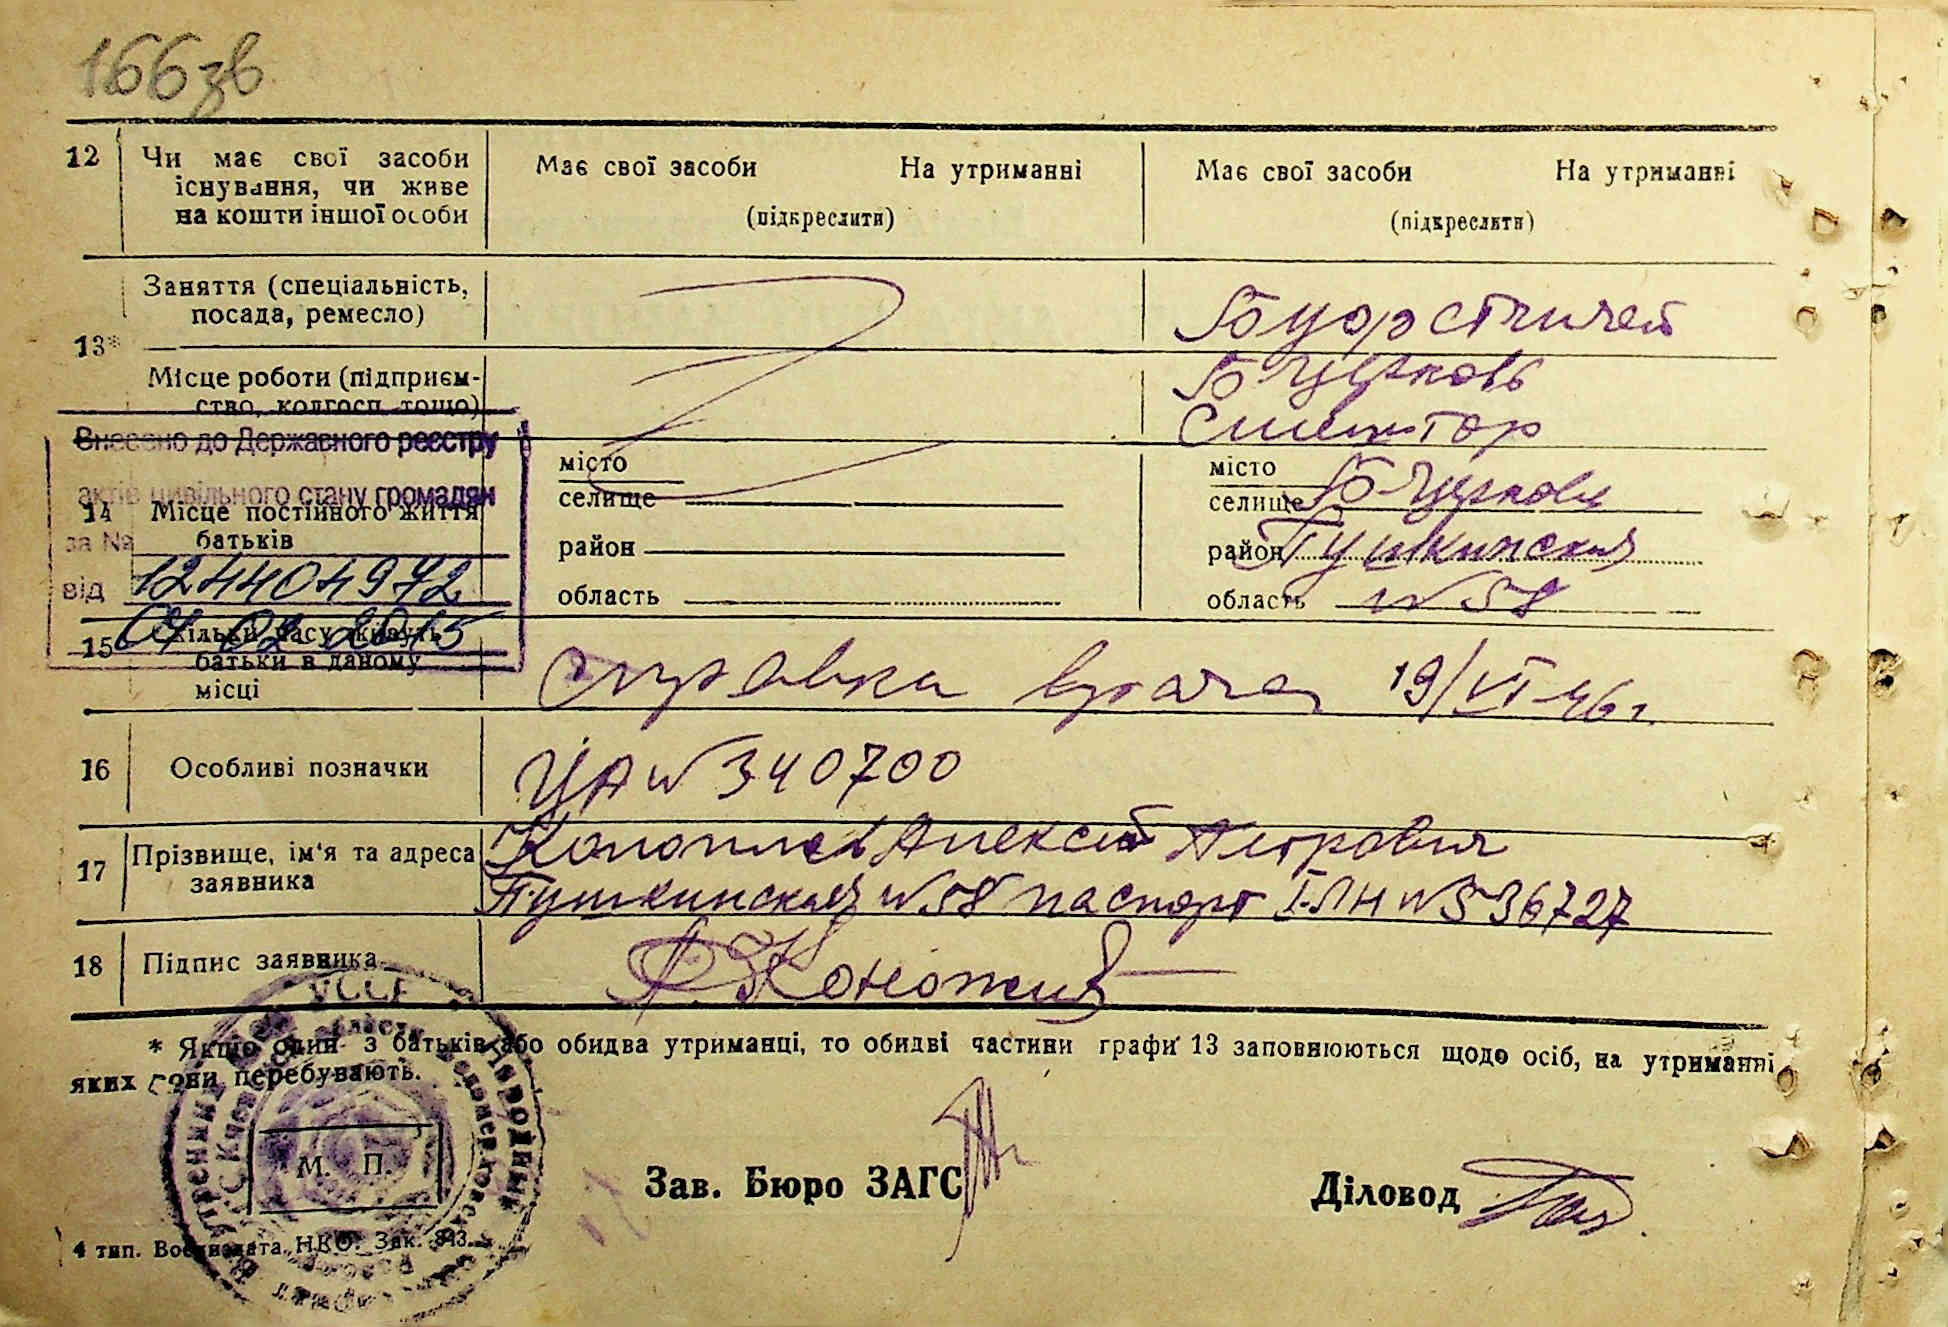 166зв
12 Чи має свої засоби існування, чи живе на кошти іншої особи
Має свої засоби На утриманні
(підкреслити)
Має свої засоби На утриманні
(підкреслити)
13* Заняття (спеціальність, посада, ремесло)
Місце роботи (підприєм-
ство, колгосп тощо)
Б Церковь
Внесено до Державного реєстру
актів цивільного стану громадян
за №
124404972
від
14 Місце постійного життя батьків
місто
селище
район
область
місто
селище Б-Церковь
район Пушкинская
область №58
15 Скільки часу живуть батьки в даному місці
Справка врача 19/VI-46г.
16 Особливі позначки
ЦА №340700
17 Прізвище, ім'я та адреса заявника
Алексей Петрович
Пушкинская №58 паспорт №536727
18 Підпис заявника
* Якщо один з батьків або обидва утриманці, то обидві частини графи 13 заповнюються щодо осіб, на утриманні
яких вони перебувають.
М. П.
Зав. Бюро ЗАГС
Діловод
4 тип. Воениздата НКО. Зак.